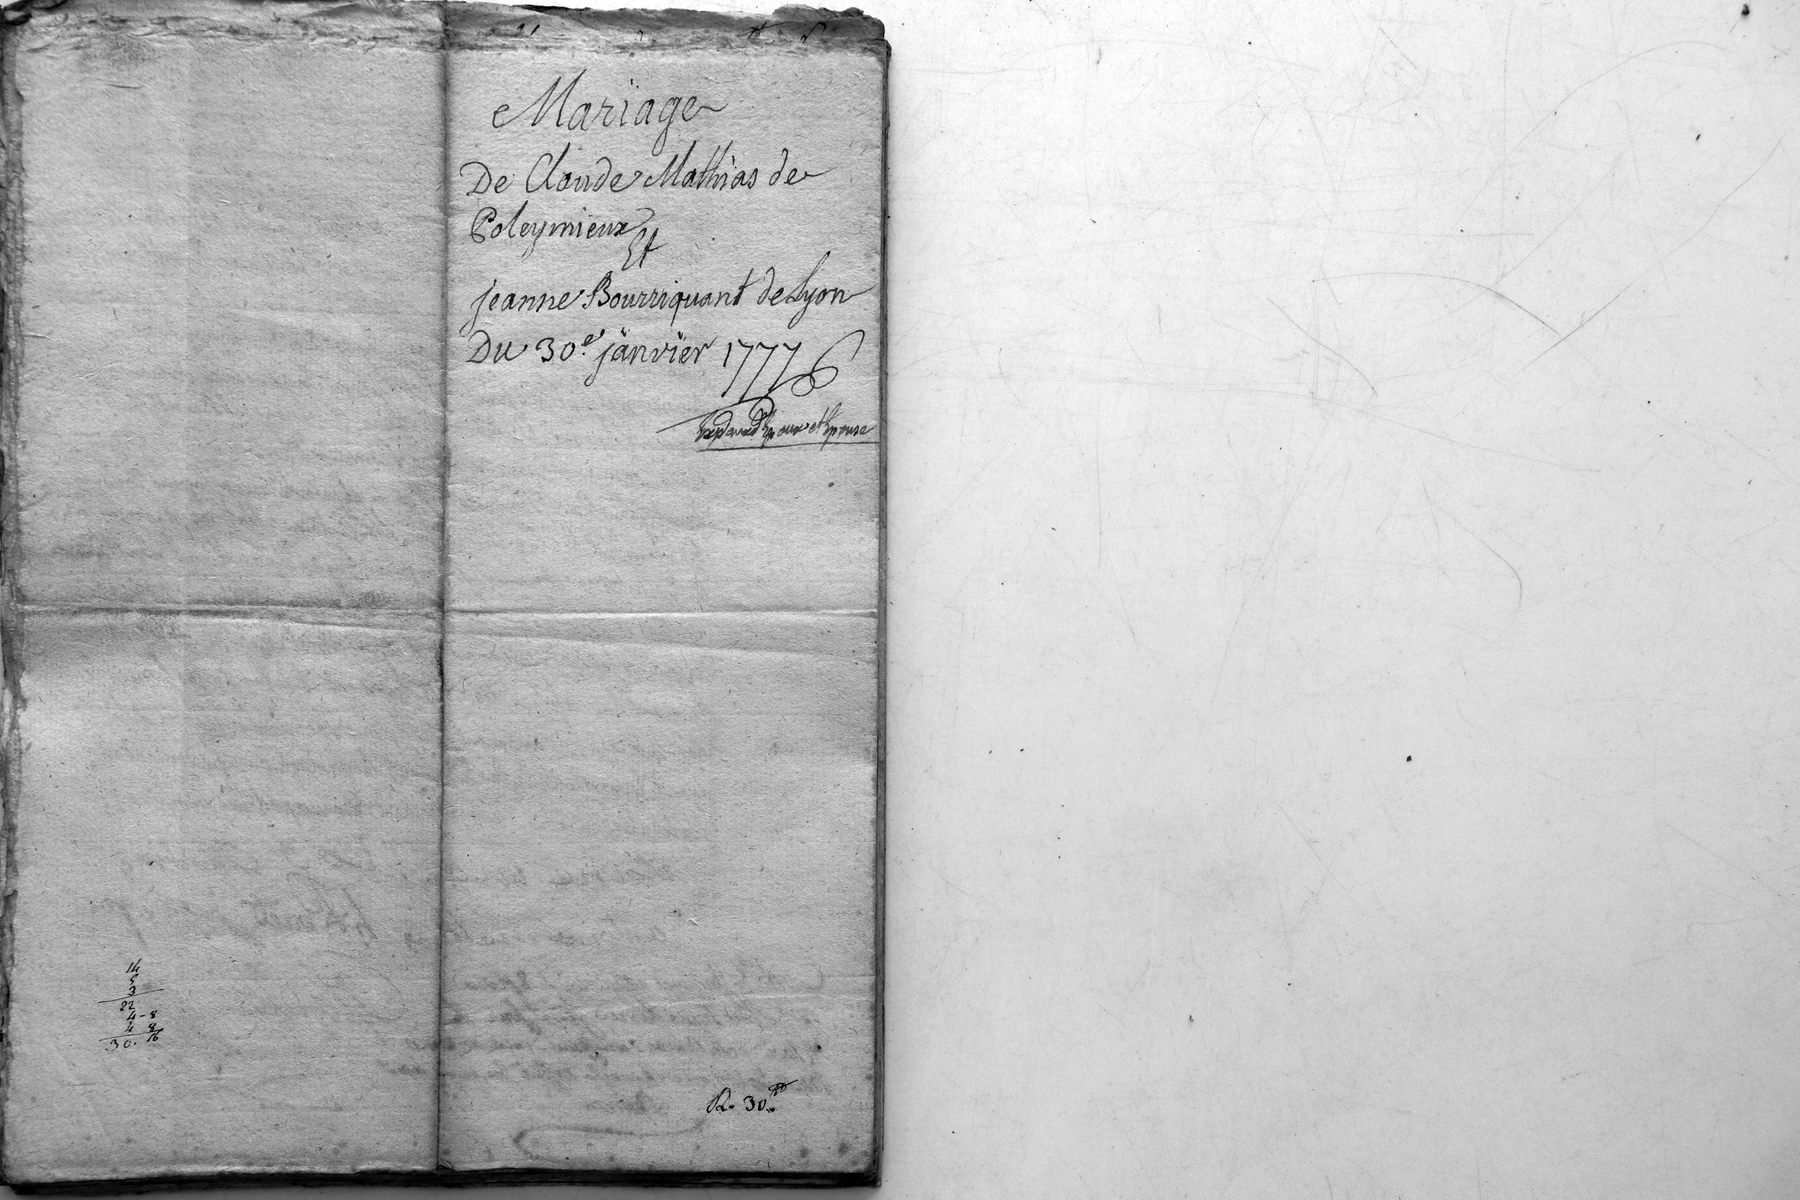 Mariage
De Claude Mathias de
Poleymieux
Et
jeanne Bourriquant de Lyon
Du 30.e janvier 1777
Epoux et Epouse
14
5
3
22
4-8
4 8
30. 16
R. 30.